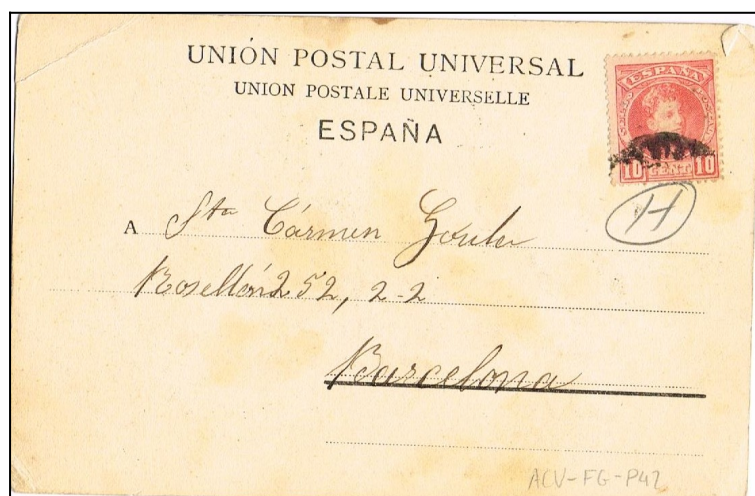 UNIÓN POSTAL UNIVERSAL
UNION POSTALE UNIVERSELLE
ESPAÑA
ESPAÑA
10 CENT 10
H
A Sta Cármen
Rosellón 252, 2-2
Barcelona
ACV-FG-P42